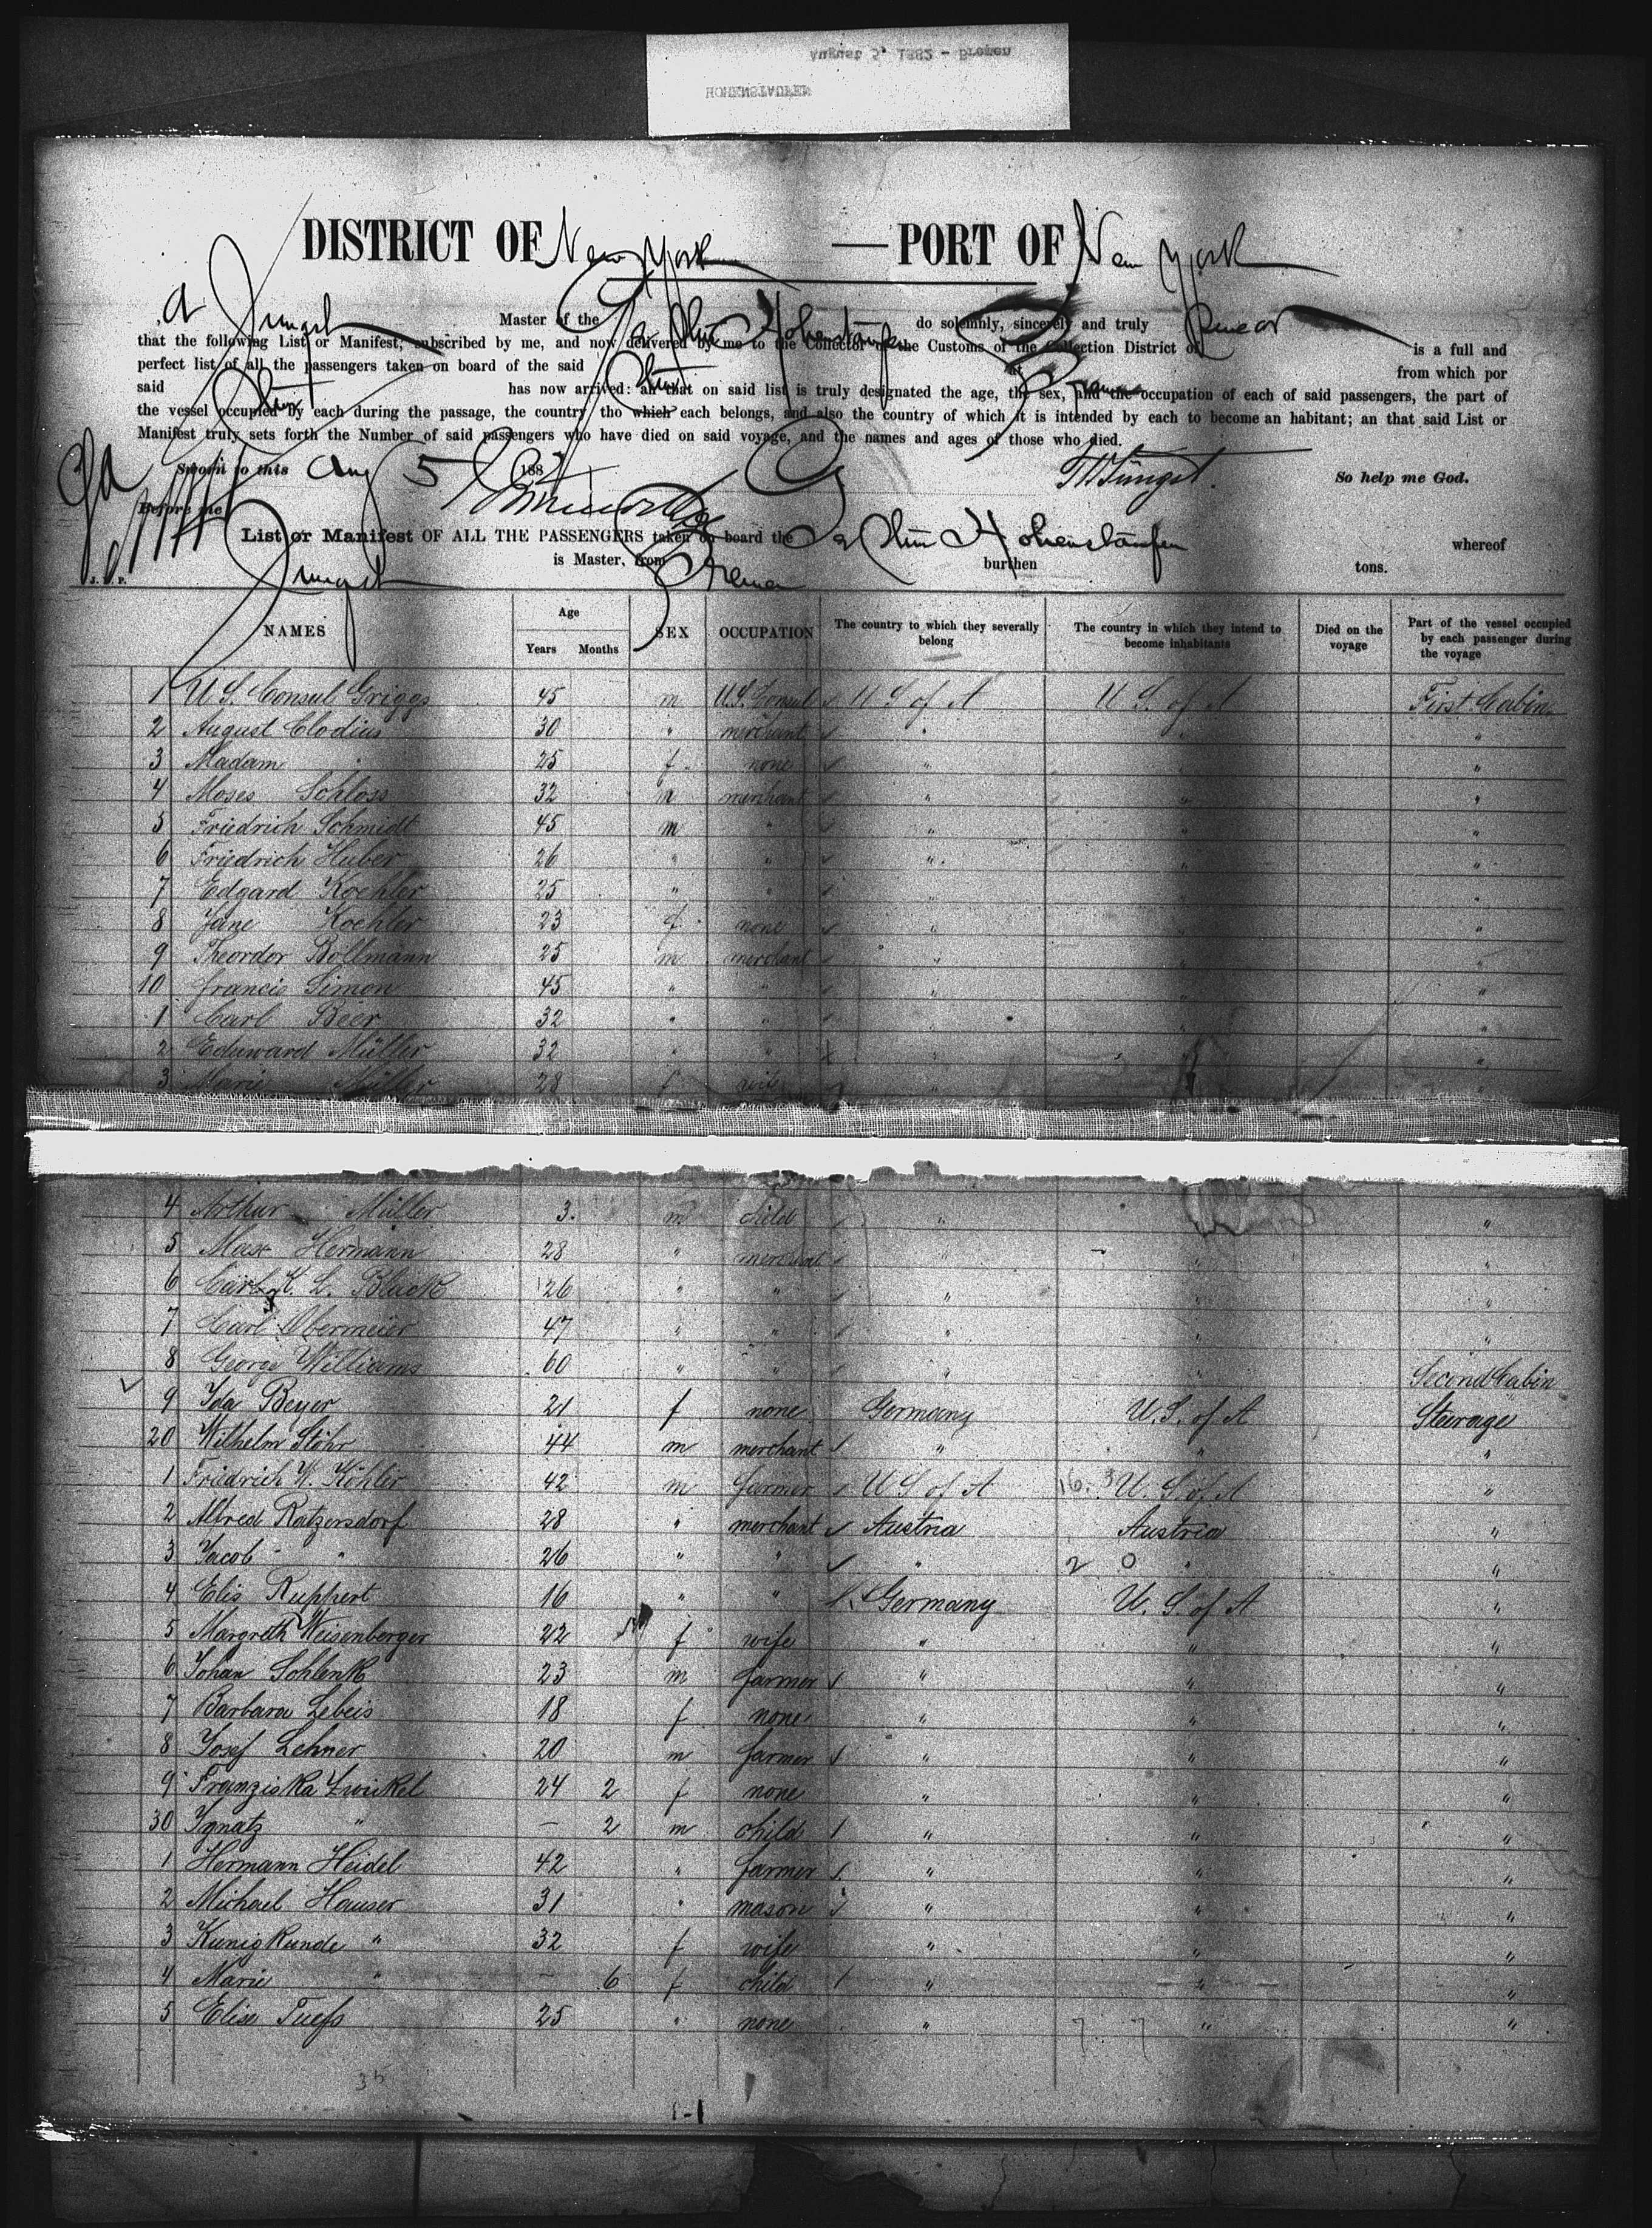 August 5, 1882 - Bremen
HOHENSTAUFEN
DISTRICT OF New York — PORT OF New York
A Jüngst Master of the Ga Ship Hohenstaufen do solemnly, sincerely and truly Swear
that the following List or Manifest; subscribed by me, and now delivered by me to the Collector of the Customs of the Collection District of is a full and
perfect list of all the passengers taken on board of the said Ship at Bremen from which por
said Ship has now arrived: an that on said list is truly designated the age, the sex, and the occupation of each of said passengers, the part of
the vessel occupied by each during the passage, the country tho which each belongs, and also the country of which it is intended by each to become an habitant; an that said List or
Manifest truly sets forth the Number of said passengers who have died on said voyage, and the names and ages of those who died.
Sworn to this Aug 5 1882 Jüngst. So help me God.
Before me
List or Manifest OF ALL THE PASSENGERS taken on board the Ga Ship Hohenstaufen whereof
Jüngst is Master, from Bremen burthen tons.
NAMES Age Years Months SEX OCCUPATION The country to which they severally belong The country in which they intend to become inhabitants Died on the voyage Part of the vessel occupied by each passenger during the voyage
1 U S. Consul Griggs 45 m U.S. Consul U S of A U S. of A First Cabin
2 August Clodius 30 " merchant " " "
3 Madam " 25 f. none " " "
4 Moses Schloss 32 m merchant " " "
5 Friedrich Schmidt 45 m " " " "
6 Friedrich Huber 26 " " " " "
7 Edgard Kochler 25 " " " " "
8 Jane Kochler 23 f. none " " "
9 Theordor Bollmann 25 m merchant " " "
10 Francis Simon 45 " " " " "
1 Carl Beer 32 " " " " "
2 Eduward Müller 32 " " " " "
3 Marie Müller 28 f wife " "
4 Arthur Müller 3. m child " "
5 Max Hermann 28 " merchant " "
6 Carl K. L. Black 26 " " " " "
7 Carl Obermeier 47 " " " " "
8 George Williams 60 " " " " Second Cabin
9 Ida Beyer 21 f none Germany U.S. of A Stearage
20 Wilhelm Stöhr 44 m merchant " " "
1 Friedrich W. Köhler 42 m farmer U S of A 16. 3 U. S. of A "
2 Alfred Ratzersdorf 28 " merchant Austria Austria "
3 Jacob " 26 " " " 2 0 " "
4 Elis Ruppert 16 " " Germany U. S of A "
5 Margreth Weisenberger 22 f wife " " "
6 Johan Schlenk 23 m farmer " " "
7 Barbara Lebeis 18 f none " " "
8 Josef Lehner 20 m farmer " " "
9 Franziska Zwickel 24 2 f none " " "
30 Ignatz " — 2 m child " " "
1 Hermann Heidel 42 " farmer " " "
2 Michael Hauser 31 " mason " " "
3 Kunigkunde " 32 f wife " " "
4 Marie " — 6 f child " " "
5 Elise 25 " none " 7 7 " "
35
1-1